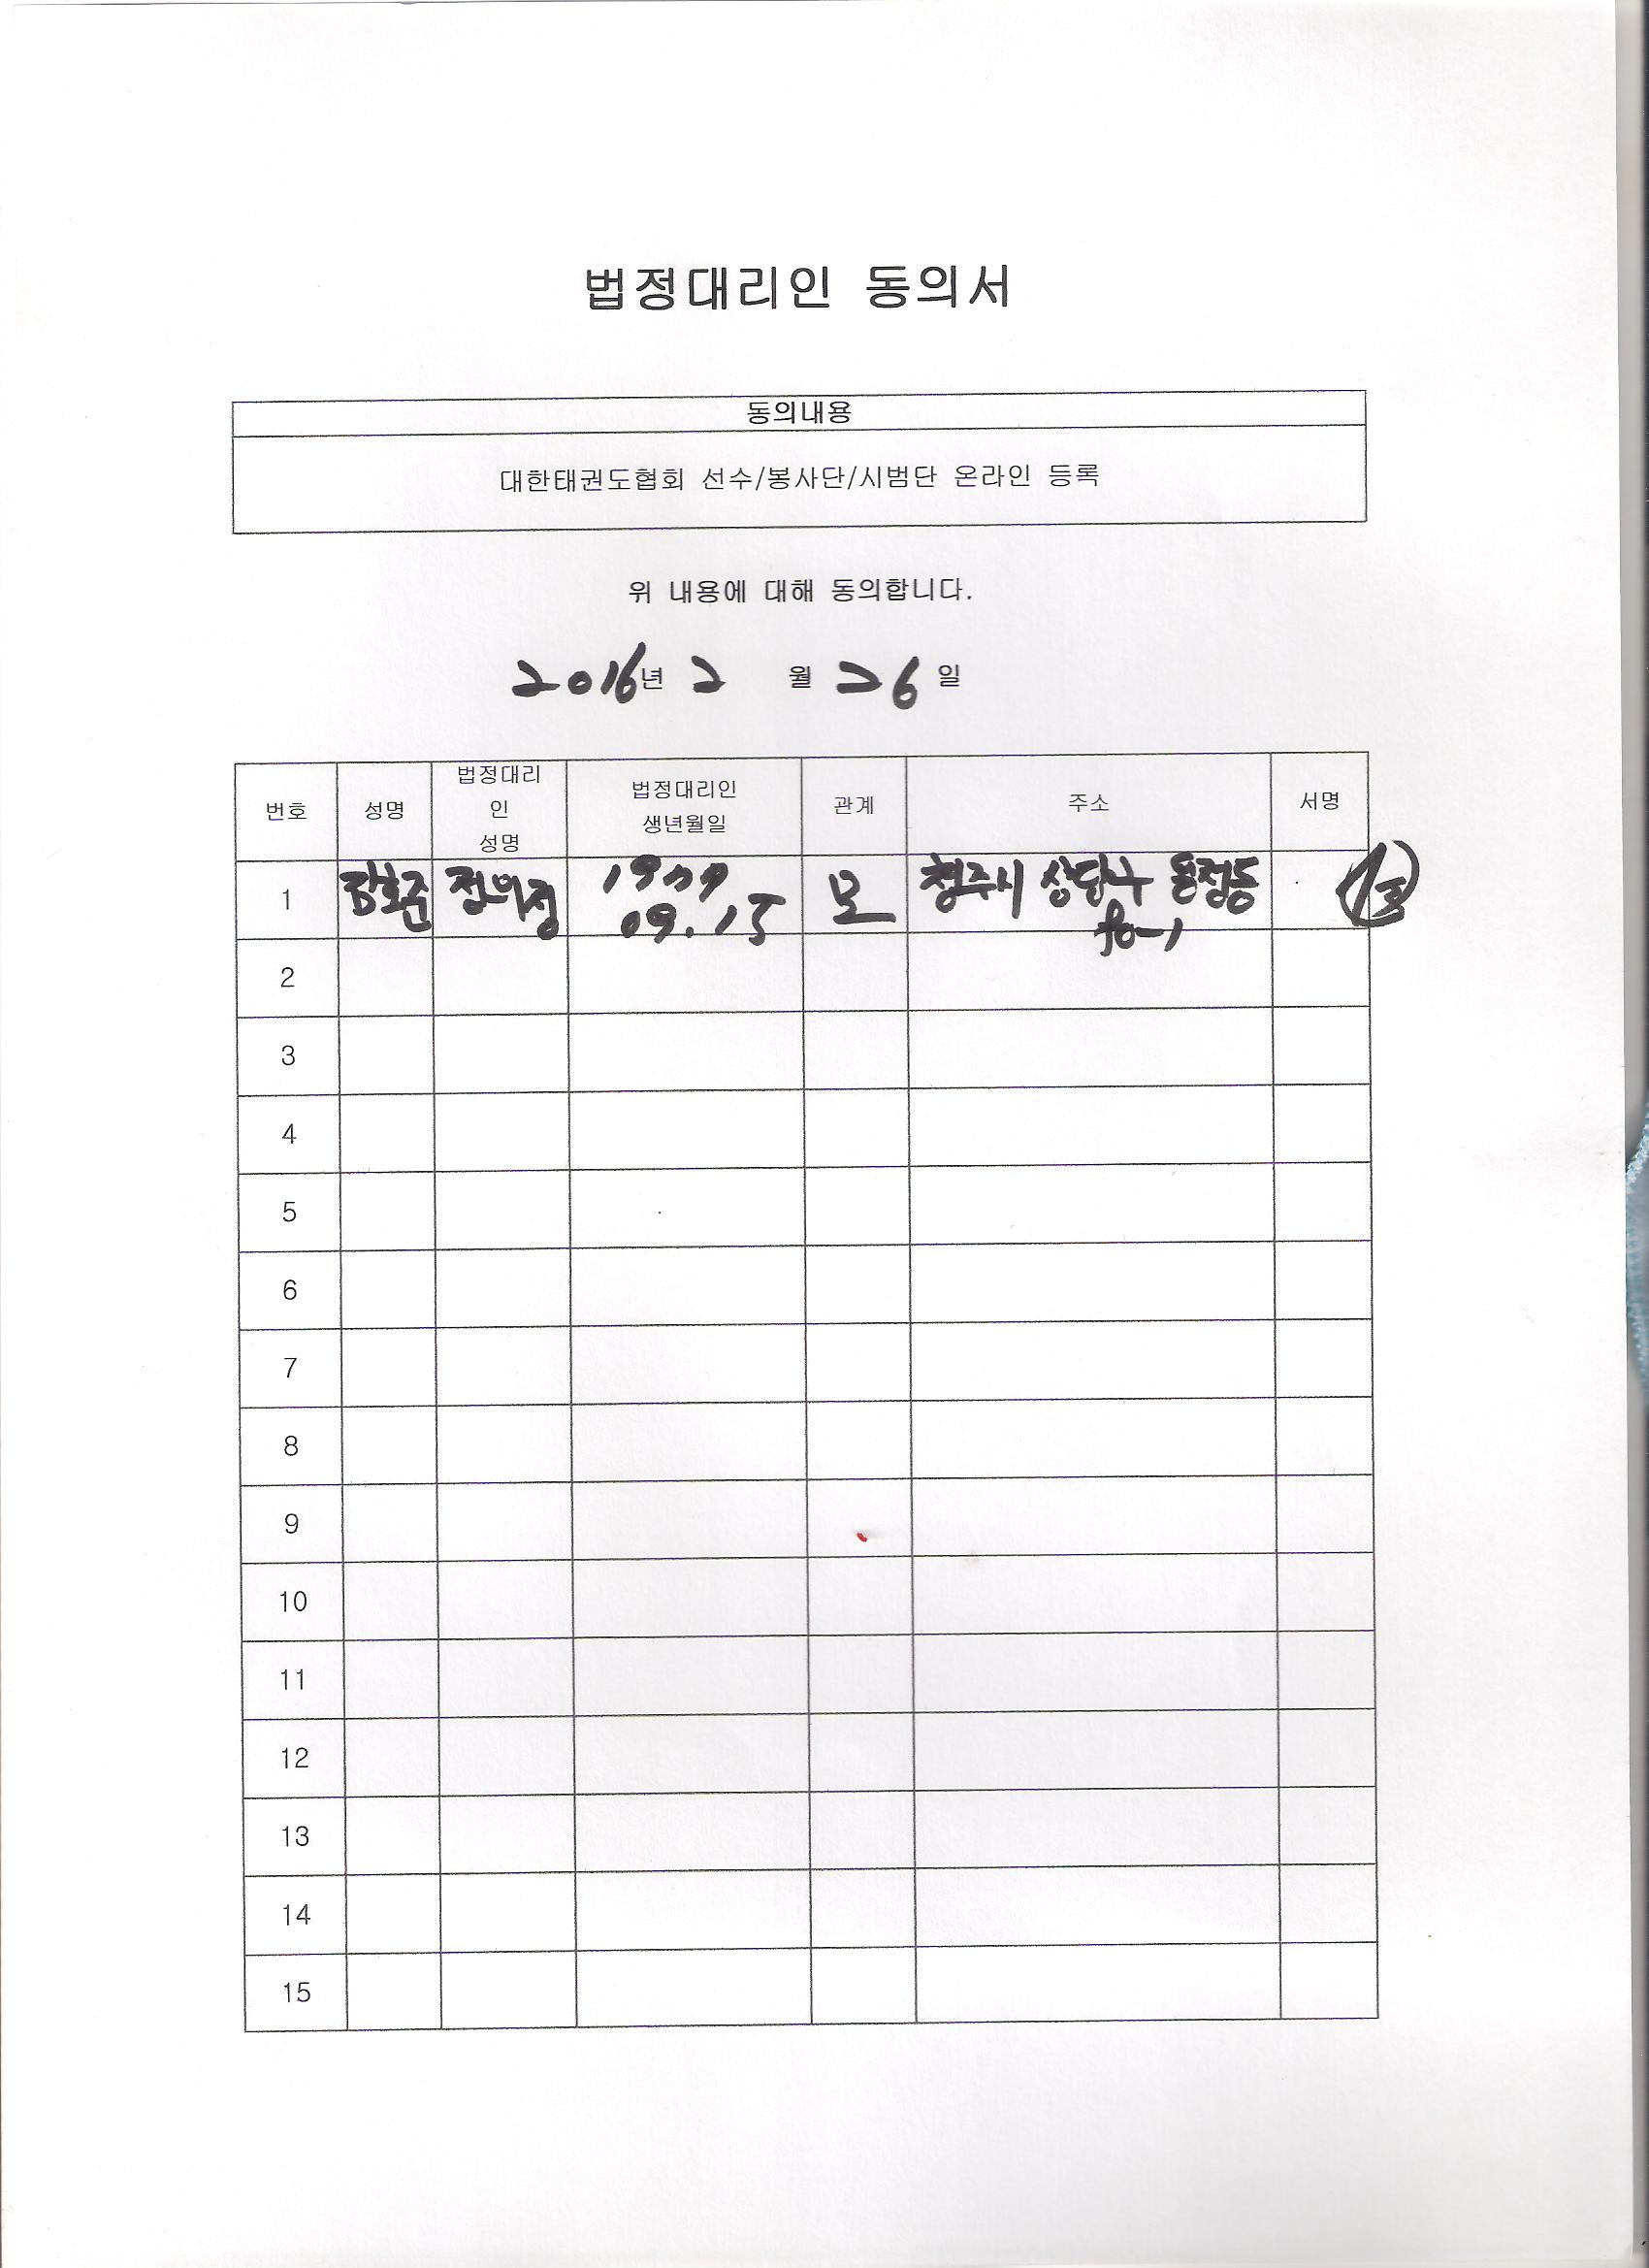 법정대리인 동의서
동의내용
대한태권도협회 선수/봉사단/시범단 온라인 등록
위 내용에 대해 동의합니다.
2016년 2 월 26 일
번호 성명 법정대리인 성명 법정대리인 생년월일 관계 주소 서명
1 정의정 09.15 모 청주시 상당구
2
3
4
5
6
7
8
9
10
11
12
13
14
15